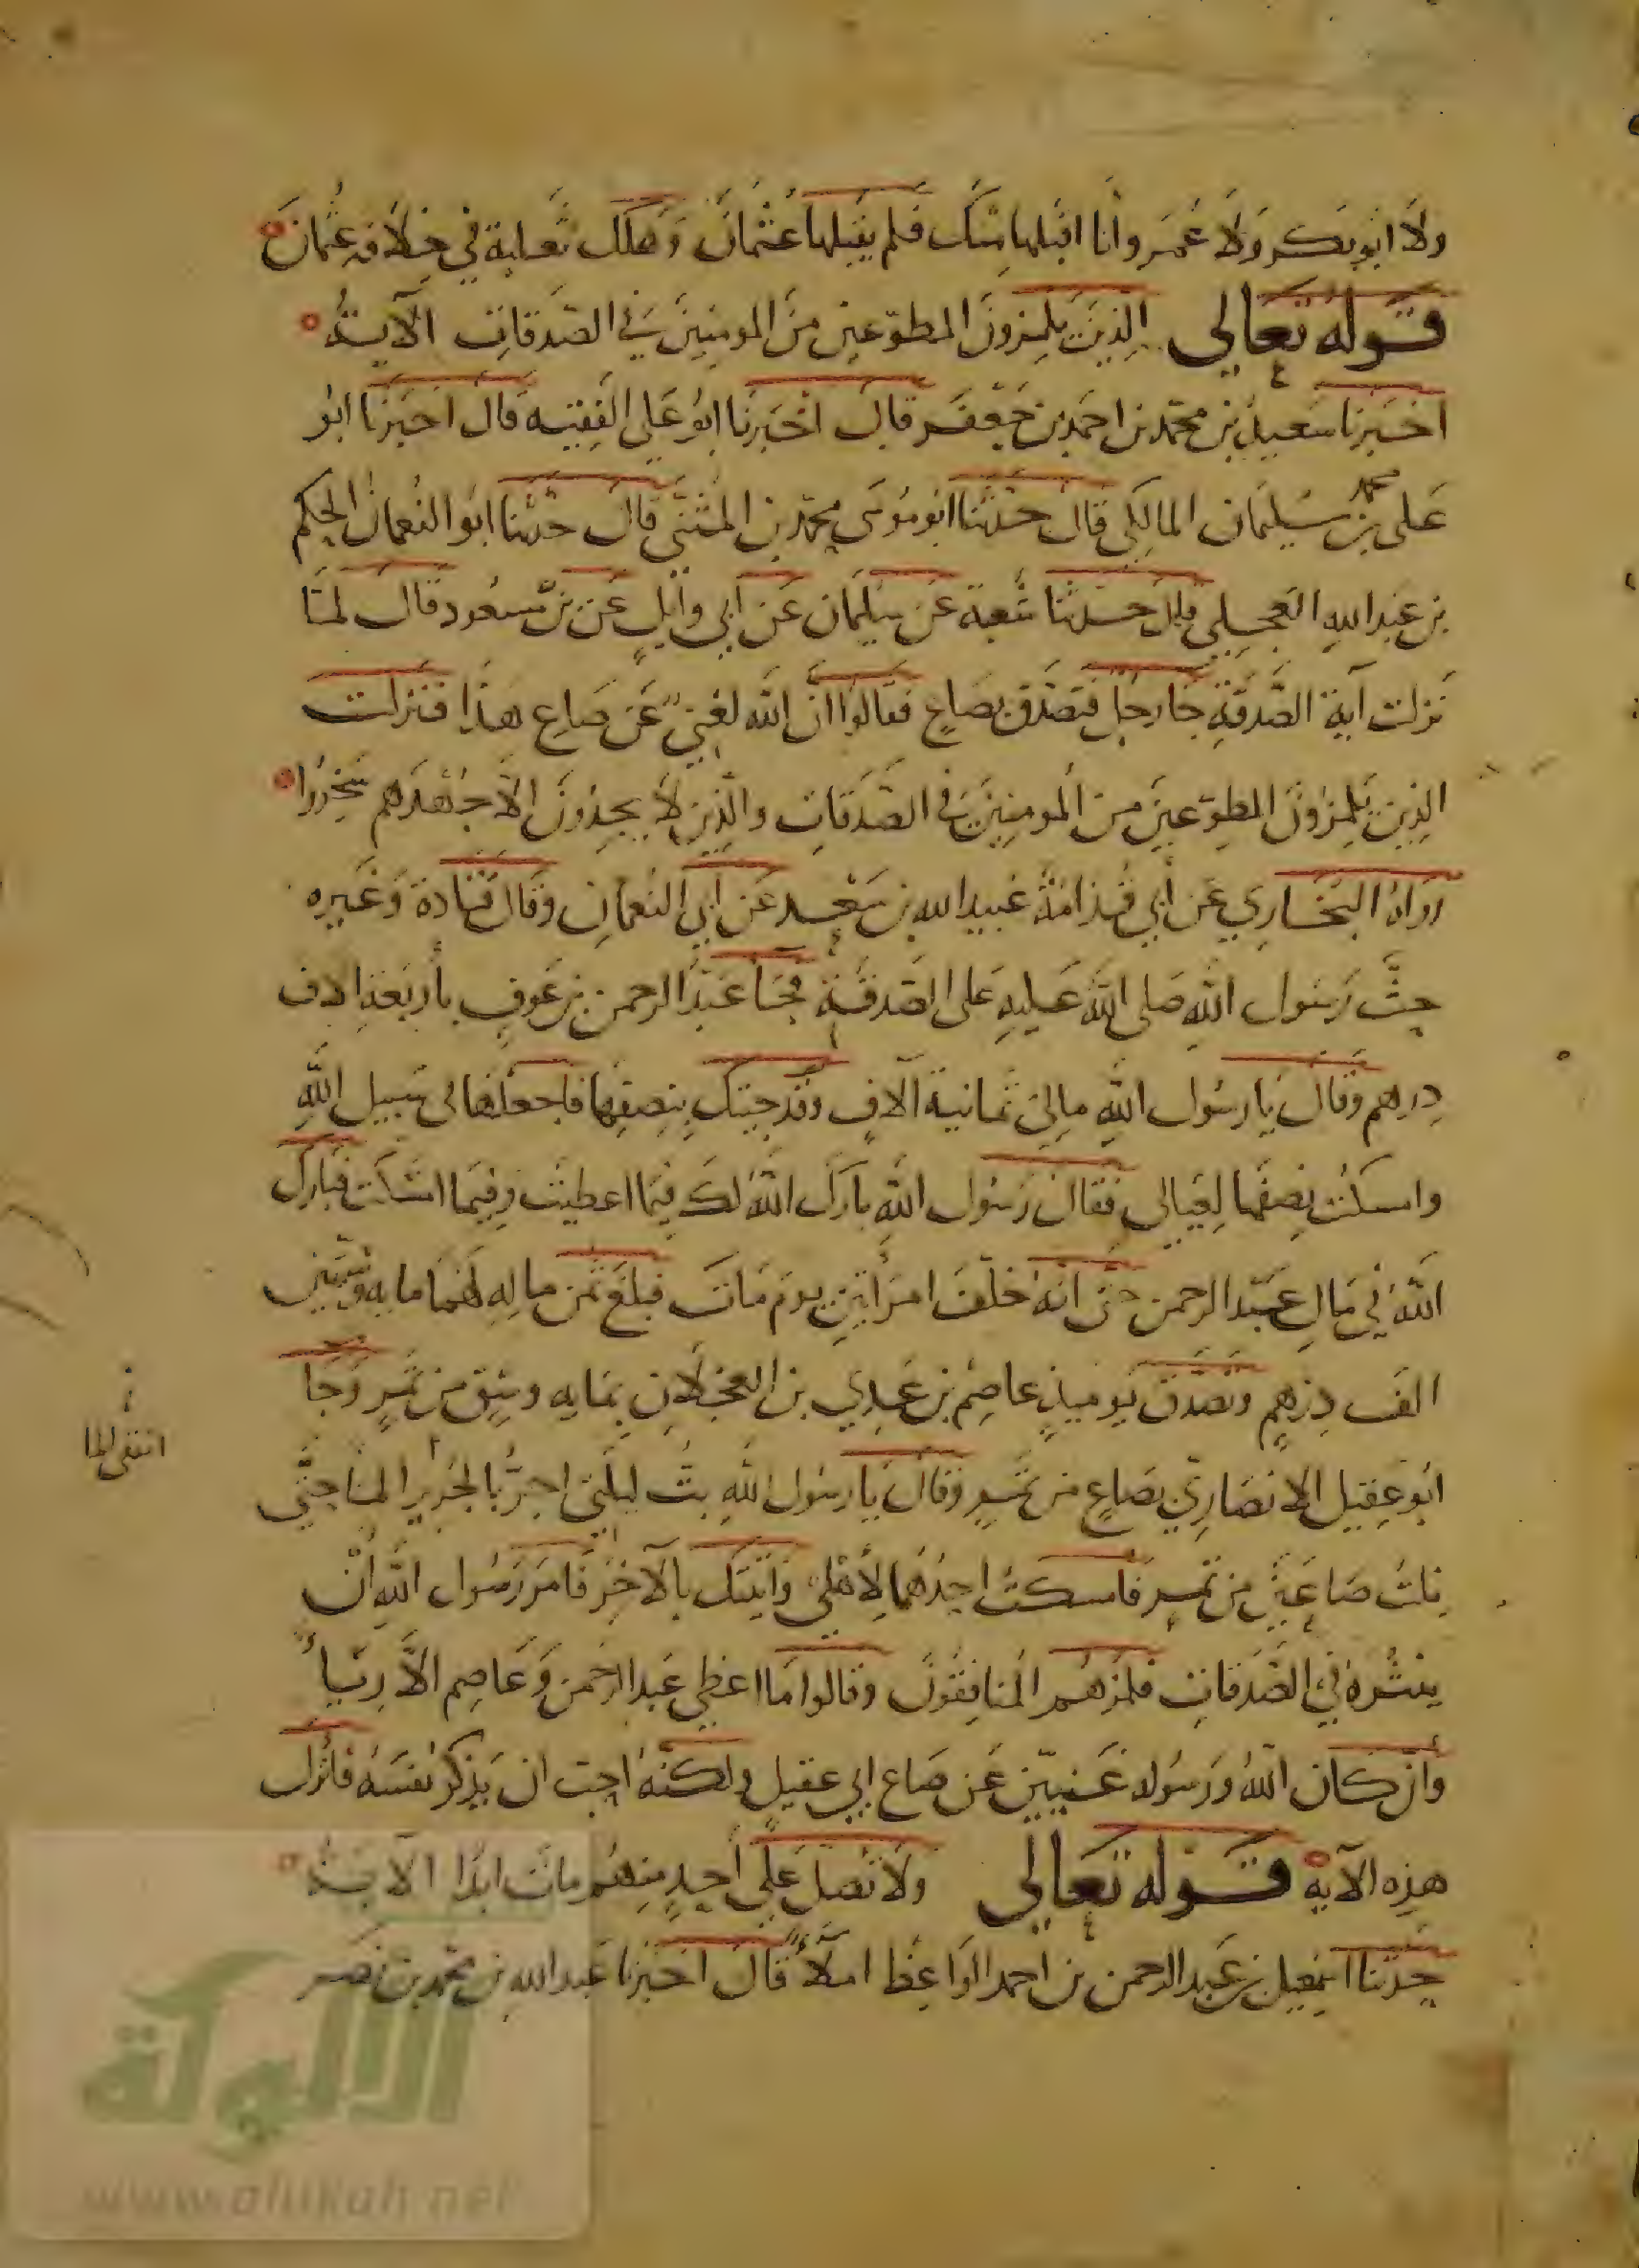 ولا ابو بكر ولا عمر وانا اقبلها منك فلم يقبلها عثمان وهلك ثعلبة في خلافة عثمان
قوله تعالى الذين يلمزون المطوعين من المومنين في الصدقات الآية
اخبرنا سعيد بن محمد بن احمد بن جعفر قال اخبرنا ابو علي الفقيه قال اخبرنا ابو
علي محمد بن سليمان المالكي قال حدثنا ابو موسى محمد بن المثنى قال حدثنا ابو النعمان الحكم
بن عبد الله العجلي قال حدثنا شعبة عن سليمان عن ابي وايل عن بن مسعود قال لما
نزلت آية الصدقة جا رجل فتصدق بصاع فقالوا ان الله لغني عن صاع هذا فنزلت
الذين يلمزون المطوعين من المومنين في الصدقات والذين لا يجدون الا جهدهم
رواه البخاري عن أبي قدامة عبيد الله بن سعيد عن ابي النعمان وقال قتادة وغيره
حث رسول الله صلى الله عليه على الصدقة فجا عبد الرحمن بن عوف بأربعة الاف
درهم وقال يا رسول الله مالي ثمانية آلاف وقد جيتك بنصفها فاجعلها في سبيل الله
وامسكت نصفها لعيالي فقال رسول الله بارك الله لك فيما اعطيت وفيما امسكت فبارك
الله في مال عبد الرحمن حتى انه خلف امرأتين يوم مات فبلغ ثمن ماله لهما مايه وستين
الف درهم وتصدق يوميذ عاصم بن عدي بن العجلان بمايه وسق من تمر وجا
ابو عقيل الانصاري بصاع من تمر وقال يا رسول الله بت ليلتي اجر بالجرير الما حتى
نلت صاعين من تمر فامسكت احدهما لأهلي واتيتك بالآخر فامر رسول الله ان
ينثره في الصدقات فلمزهم المنافقون وقالوا ما اعطى عبد الرحمن وعاصم الا رياء
وان كان الله ورسوله غنيين عن صاع ابي عقيل ولكنه احب ان يذكر نفسه فانزل
هذه الآية قوله تعالى ولا تصل على أحد منهم مات ابدا الآية
حدثنا اسمعيل بن عبد الرحمن بن احمد الواعظ املاء قال اخبرنا عبد الله بن محمد بن نصر
الألوكة
www.alukah.net